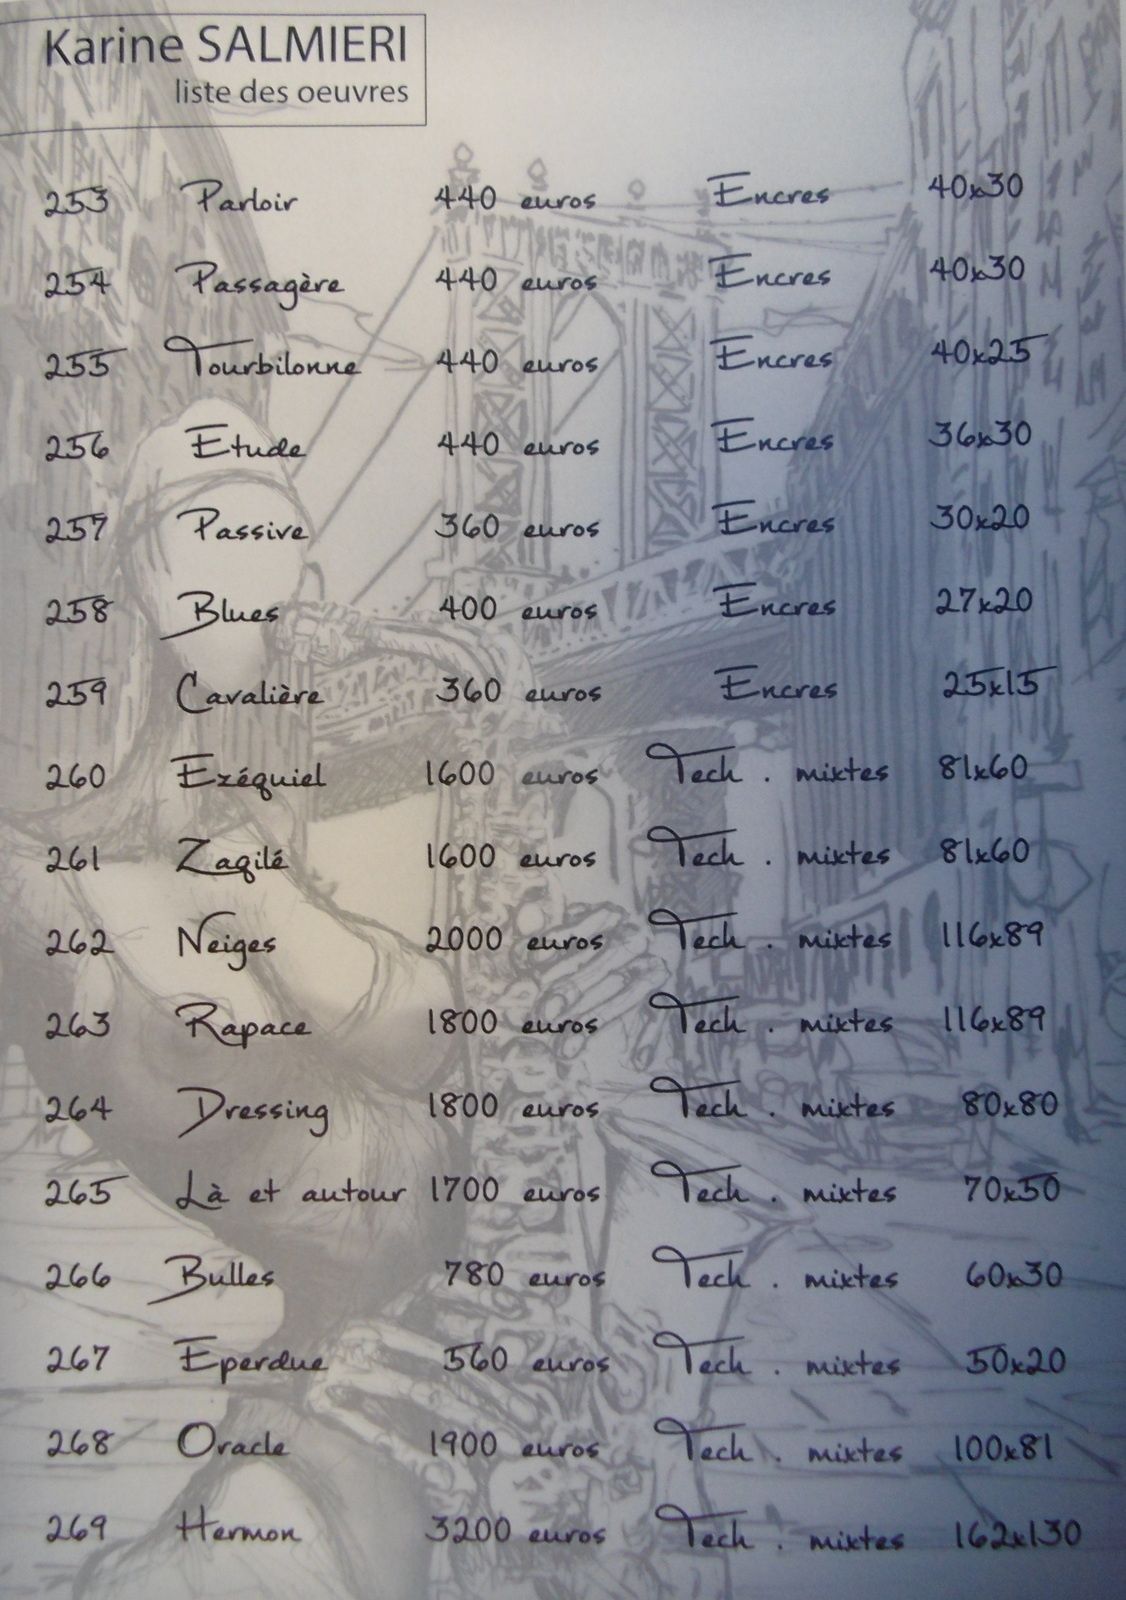 Karine SALMIERI
liste des oeuvres
253 Parloir 440 euros Encres 40x30
254 Passagère 440 euros Encres 40x30
255 Tourbilonne 440 euros Encres 40x25
256 Etude 440 euros Encres 36x30
257 Passive 360 euros Encres 30x20
258 Blues 400 euros Encres 27x20
259 Cavalière 360 euros Encres 25x15
260 Ezéquiel 1600 euros Tech . mixtes 81x60
261 Zaqilé 1600 euros Tech . mixtes 81x60
262 Neiges 2000 euros Tech . mixtes 116x89
263 Rapace 1800 euros Tech . mixtes 116x89
264 Dressing 1800 euros Tech . mixtes 80x80
265 Là et autour 1700 euros Tech . mixtes 70x50
266 Bulles 780 euros Tech . mixtes 60x30
267 Eperdue 560 euros Tech . mixtes 50x20
268 Oracle 1900 euros Tech . mixtes 100x81
269 Hermon 3200 euros Tech . mixtes 162x130